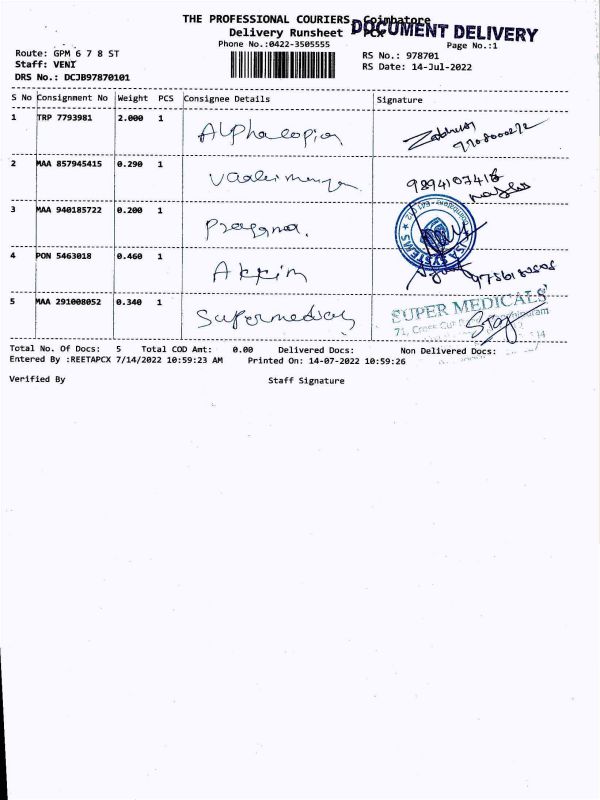 THE PROFESSIONAL COURIERS, Coimbatore
Delivery Runsheet - PCX
DOCUMENT DELIVERY
Phone No.:0422-3505555
Page No.:1
Route: GPM 6 7 8 ST
RS No.: 978701
Staff: VENI
RS Date: 14-Jul-2022
DRS No.: DCJB97870101
S No Consignment No Weight PCS Consignee Details Signature
1 TRP 7793981 2.000 1
2 MAA 857945415 0.290 1
9894107418
3 MAA 940185722 0.200 1
4 PON 5463018 0.460 1
5 MAA 291008052 0.340 1 Supermedicals
SUPER MEDICALS
71, Cross Cut
Total No. Of Docs: 5 Total COD Amt: 0.00 Delivered Docs: Non Delivered Docs:
Entered By :REETAPCX 7/14/2022 10:59:23 AM Printed On: 14-07-2022 10:59:26
Verified By Staff Signature